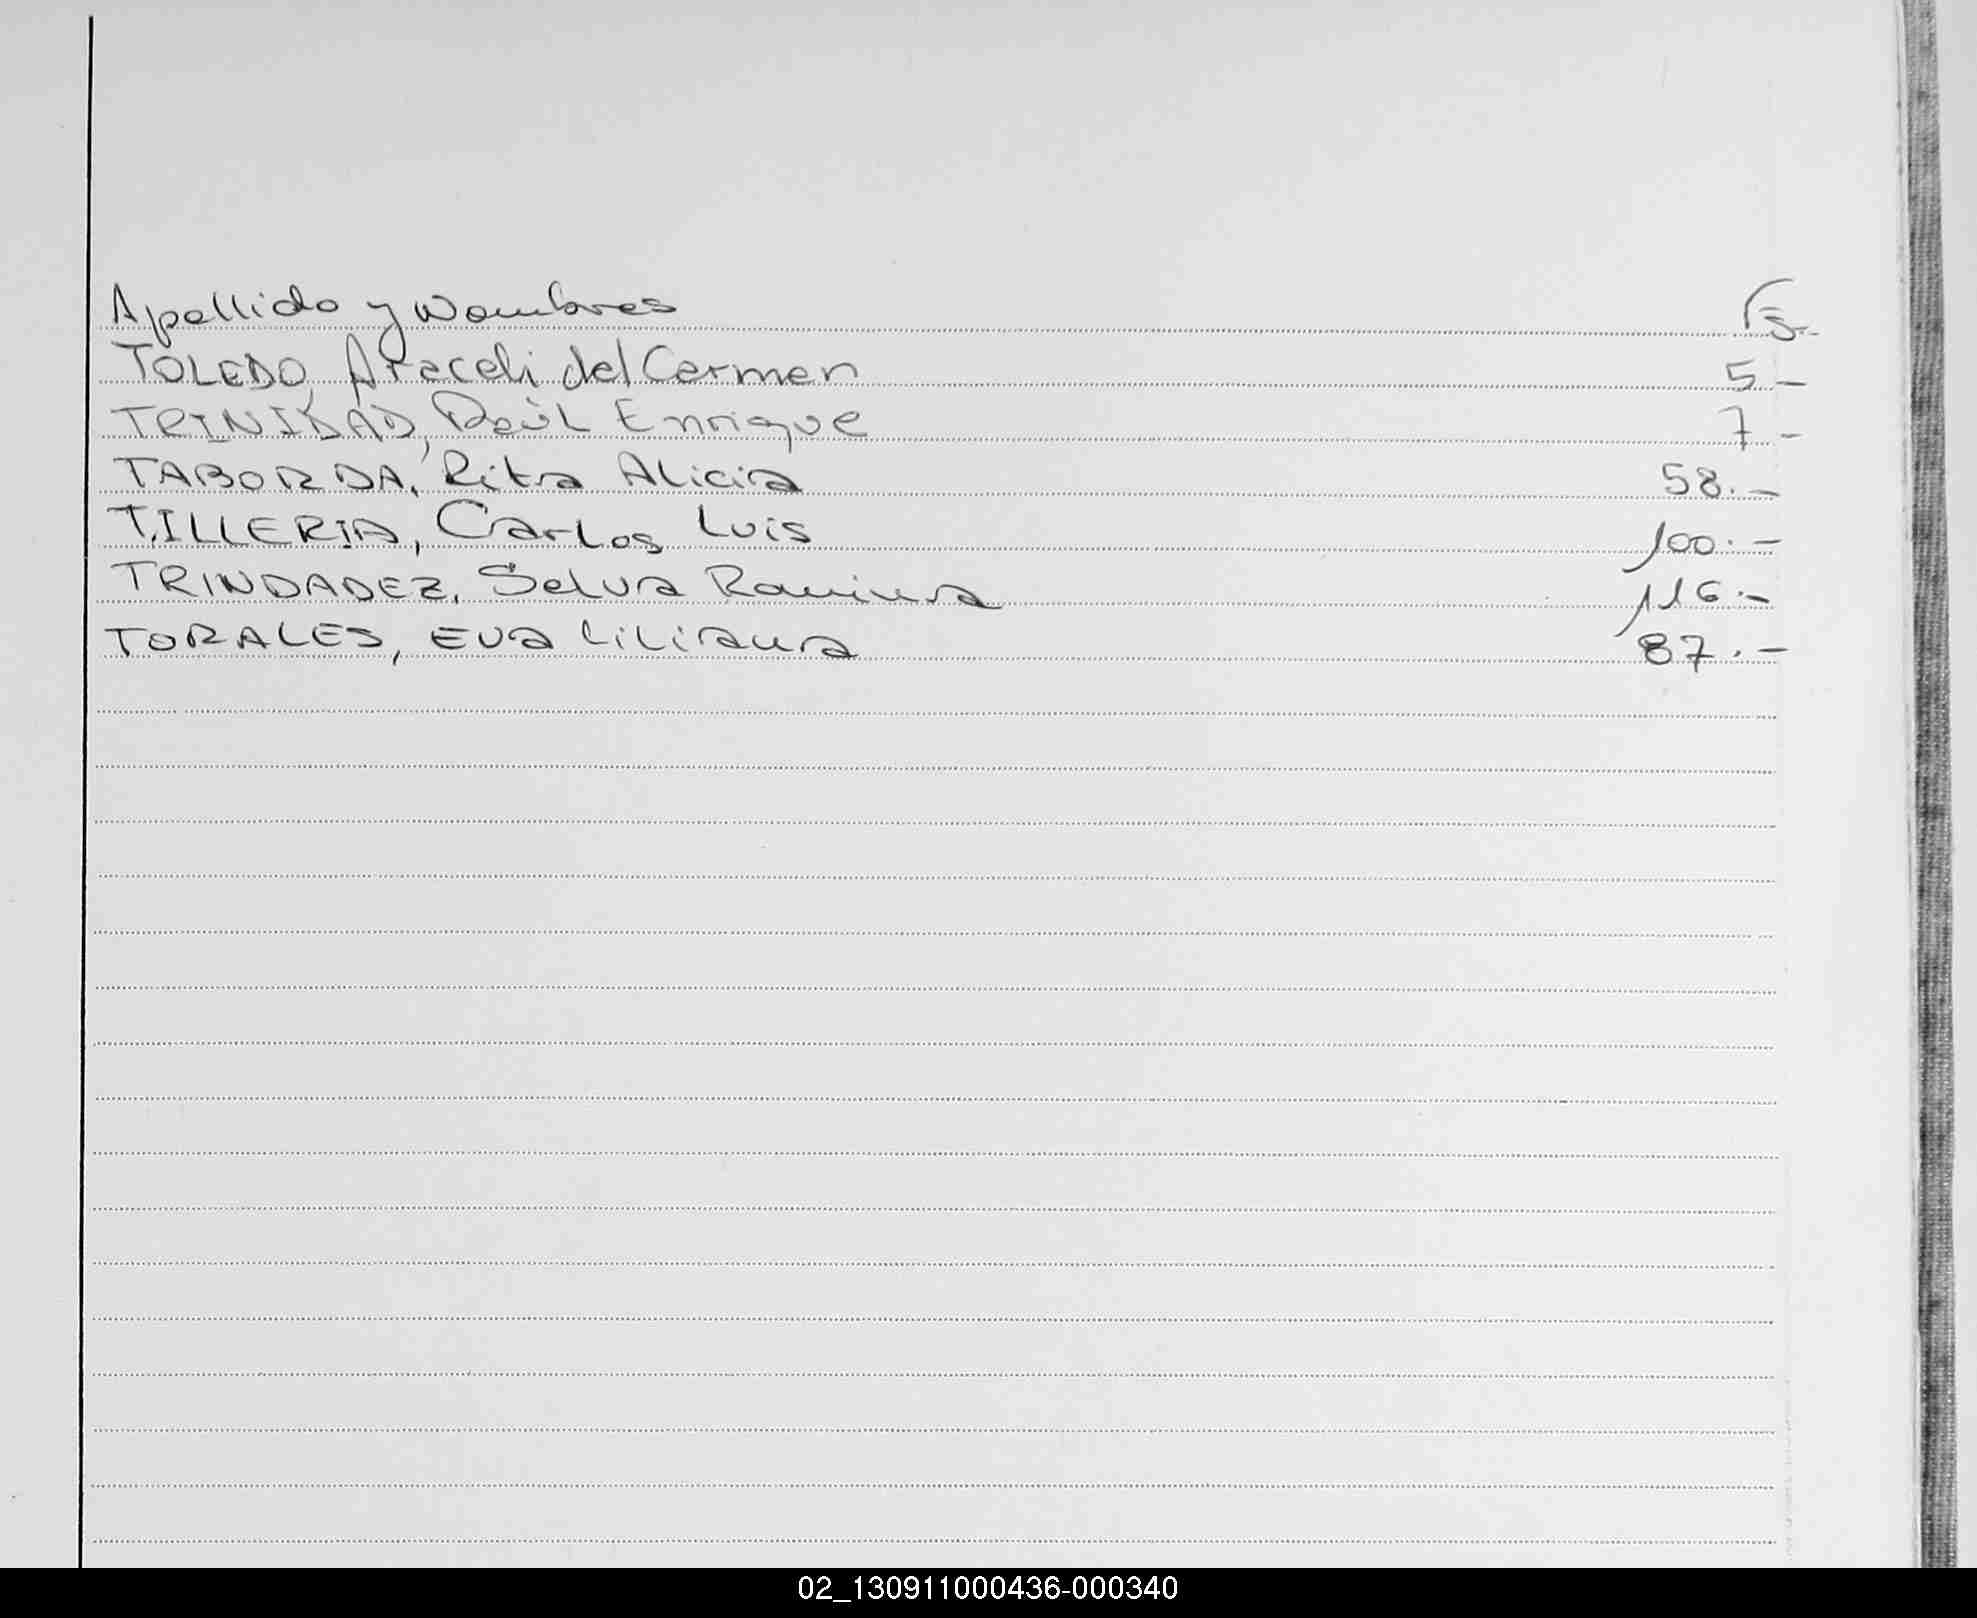 Apellido y Nombres Fs.
TOLEDO, Araceli del Carmen 5.-
TRINIDAD, Raúl Enrique 7-
TABORDA, Rita Alicia 58.-
TILLERIA, Carlos Luis 100.-
TRINDADEZ, Selva Ramina 116.-
TORALES, Eva Liliana 87.-
02_130911000436-000340